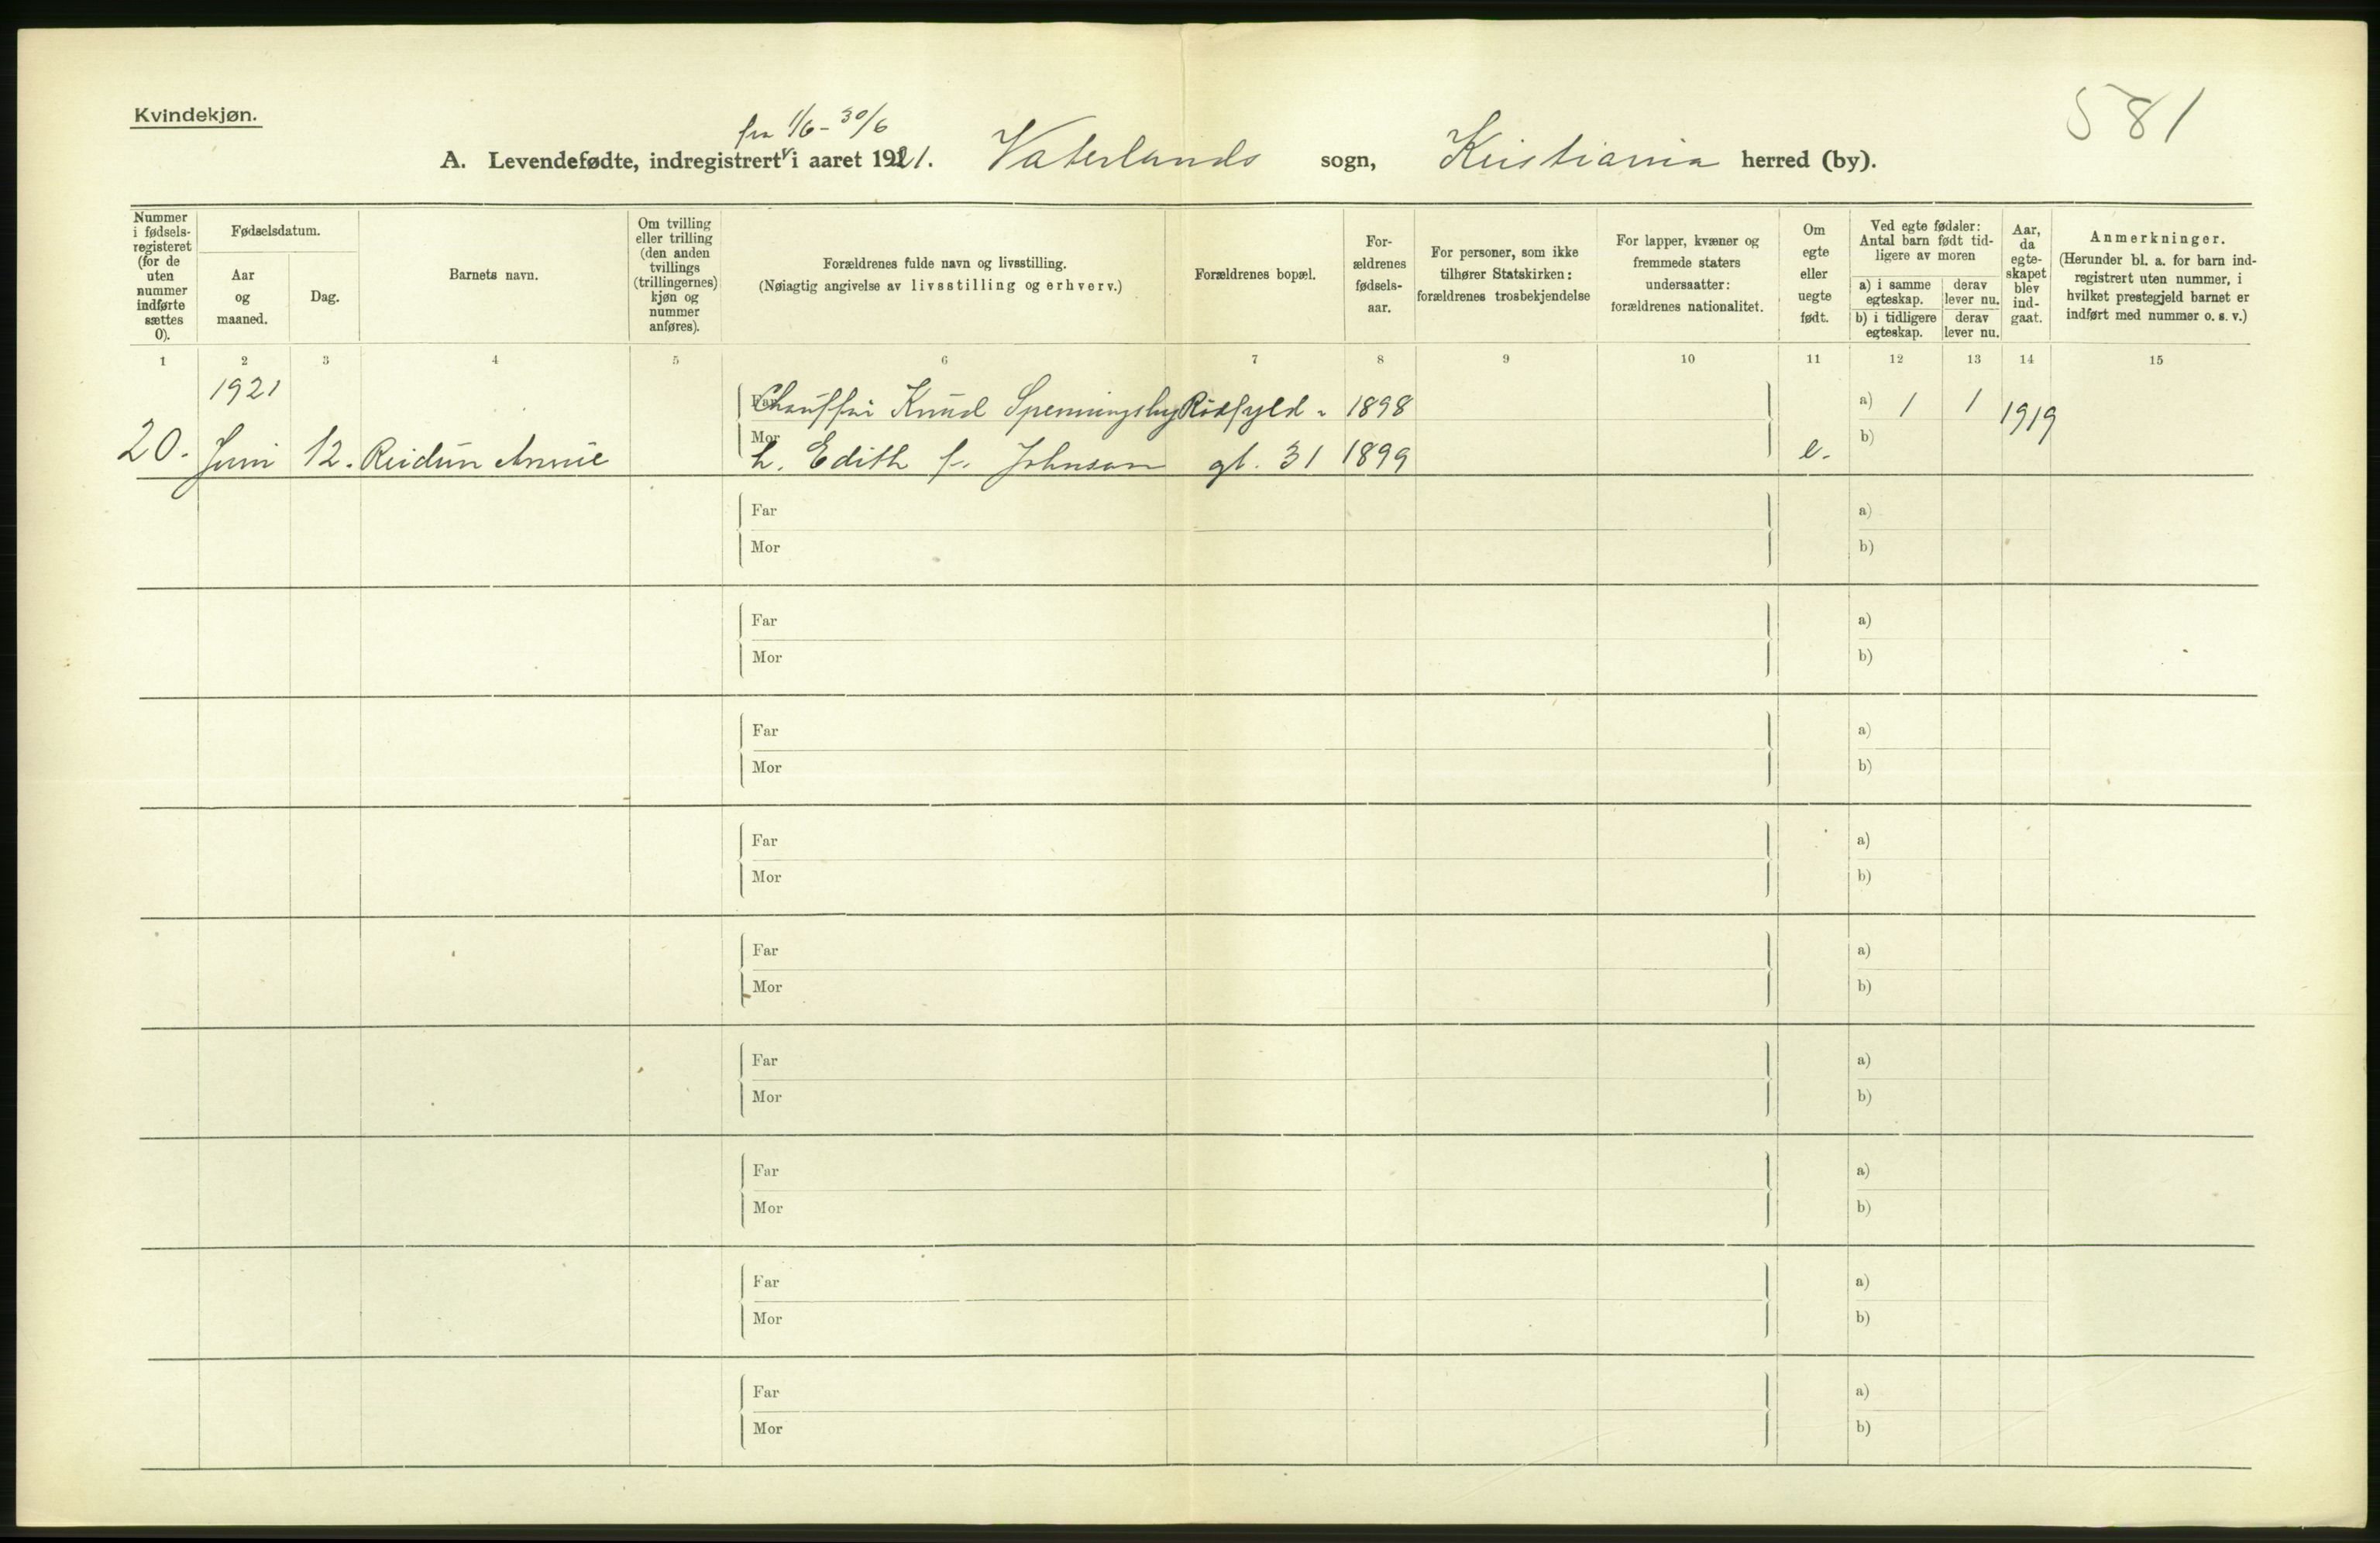 Kvindekjøn.
581
fra 1/6 - 30/6
A. Levendefødte, indregistrert i aaret 1921. Vaterlands sogn, Kristiania herred (by).
Nummer i fødsels-registeret (for de uten nummer indførte sættes 0).
Fødselsdatum.
Aar og maaned.
Dag.
Barnets navn.
Om tvilling eller trilling (den anden tvillings (trillingernes) kjøn og nummer anføres).
Forældrenes fulde navn og livsstilling.
(Nøiagtig angivelse av livsstilling og erhverv.)
Forældrenes bopæl.
For-ældrenes fødsels-aar.
For personer, som ikke tilhører Statskirken: forældrenes trosbekjendelse
For lapper, kvæner og fremmede staters undersaatter: forældrenes nationalitet.
Om egte eller uegte født.
Ved egte fødsler: Antal barn født tid-ligere av moren
a) i samme egteskap.
derav lever nu.
b) i tidligere egteskap.
derav lever nu.
Aar, da egte-skapet blev ind-gaat.
Anmerkninger.
(Herunder bl. a. for barn ind-registrert uten nummer, i hvilket prestegjeld barnet er indført med nummer o. s. v.)
1 2 3 4 5 6 7 8 9 10 11 12 13 14 15
1921
Far Chauffør Knud Spenningsby Rødfyld- 1898 a) 1 1 1919
20. Juni 12. Reidun Annie Mor h. Edith f. Johnson gt. 31 1899 e. b)
Far a)
Mor b)
Far a)
Mor b)
Far a)
Mor b)
Far a)
Mor b)
Far a)
Mor b)
Far a)
Mor b)
Far a)
Mor b)
Far a)
Mor b)
Far a)
Mor b)